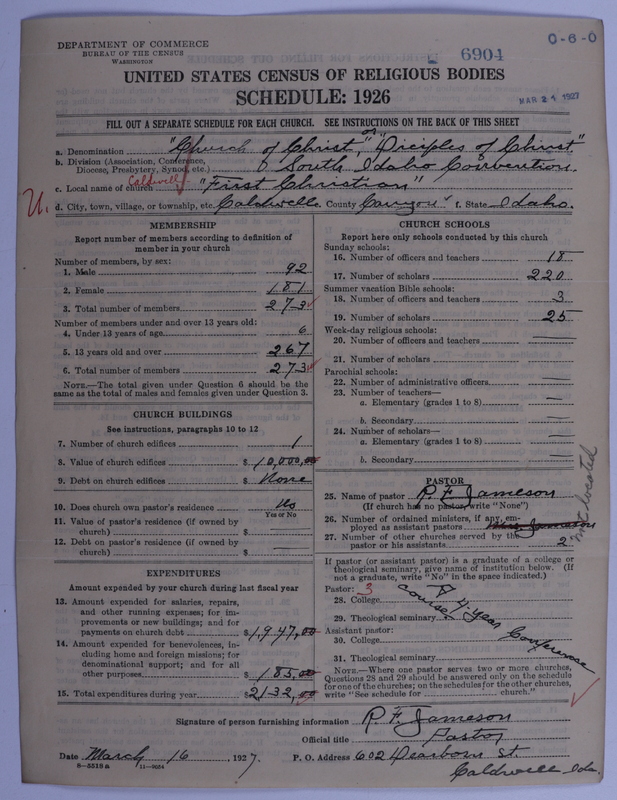 DEPARTMENT OF COMMERCE
BUREAU OF THE CENSUS
WASHINGTON
6904
0-6-0
UNITED STATES CENSUS OF RELIGIOUS BODIES
SCHEDULE: 1926
MAR 21 1927
FILL OUT A SEPARATE SCHEDULE FOR EACH CHURCH. SEE INSTRUCTIONS ON THE BACK OF THIS SHEET
a. Denomination "Church of Christ," or "Diciples of Christ"
b. Division (Association, Conference, Diocese, Presbytery, Synod, etc.) South Idaho Convention.
Caldwell
c. Local name of church "First Christian"
U.
d. City, town, village, or township, etc. Caldwell. County Canyon f. State Idaho.
MEMBERSHIP
Report number of members according to definition of
member in your church
Number of members, by sex:
1. Male 92
2. Female 181
3. Total number of members 273
Number of members under and over 13 years old:
4. Under 13 years of age 6
5. 13 years old and over 267
6. Total number of members 273
NOTE.—The total given under Question 6 should be
same as the total of males and females given under Question 3.
CHURCH BUILDINGS
See instructions, paragraphs 10 to 12
7. Number of church edifices 1
8. Value of church edifices $10,000,00
9. Debt on church edifices $ None
10. Does church own pastor's residence No
Yes or No
11. Value of pastor's residence (if owned by
church) $
12. Debt on pastor's residence (if owned by
church) $
EXPENDITURES
Amount expended by your church during last fiscal year
13. Amount expended for salaries, repairs,
and other running expenses; for im-
provements or new buildings; and for
payments on church debt $1,947,00
14. Amount expended for benevolences, in-
cluding home and foreign missions; for
denominational support; and for all
other purposes $185,00
15. Total expenditures during year $2132,00
CHURCH SCHOOLS
Report here only schools conducted by this church
Sunday schools:
16. Number of officers and teachers 18
17. Number of scholars 220
Summer vacation Bible schools:
18. Number of officers and teachers 3
19. Number of scholars 25
Week-day religious schools:
20. Number of officers and teachers
21. Number of scholars
Parochial schools:
22. Number of administrative officers
23. Number of teachers—
a. Elementary (grades 1 to 8)
b. Secondary
24. Number of scholars—
a. Elementary (grades 1 to 8)
b. Secondary
PASTOR
25. Name of pastor R F Jameson
(If church has no pastor, write "None")
26. Number of ordained ministers, if any, em-
ployed as assistant pastors Jameson
27. Number of other churches served by the
pastor or his assistants 2
not located
If pastor (or assistant pastor) is a graduate of a college or
theological seminary, give name of institution below. (If
not a graduate, write "No" in the space indicated.)
Pastor: 3
28. College
29. Theological seminary
4-year Conference course
Assistant pastor:
30. College
31. Theological seminary
NOTE.—Where one pastor serves two or more churches,
Questions 28 and 29 should be answered only on the schedule
for one of the churches; on the schedules for the other churches,
write "See schedule for church."
Signature of person furnishing information R. F. Jameson
Official title Pastor
Date March 16, 1927. P. O. Address 602 Dearborn St
Caldwell Ida.
8-5518a 11-9054